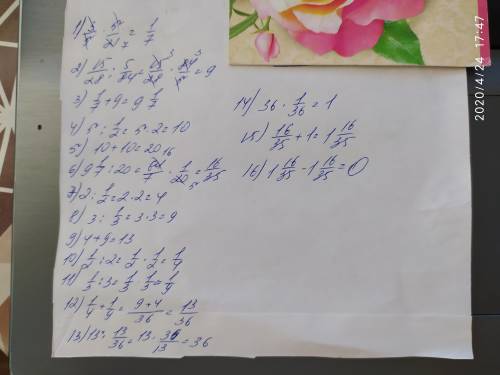 1) 5/21 = 1/7
2) 15/28 : 5/84 = 15/28 · 84/5 = 9
3) 1/7 + 9 = 9 1/7
4) 5 : 1/2 = 5 · 2 = 10
5) 10 + 10 = 20
6) 9 1/7 : 20 = 64/7 · 1/20 = 16/35
7) 2 : 1/2 = 2 · 2 = 4
8) 3 : 1/3 = 3 · 3 = 9
9) 4 + 9 = 13
10) 1/2 : 2 = 1/2 · 1/2 = 1/4
11) 1/3 : 3 = 1/3 · 1/3 = 1/9
12) 1/4 + 1/9 = 9+4/36 = 13/36
13) 13 : 13/36 = 13 · 36/13 = 36
14) 36 · 1/36 = 1
15) 16/35 + 1 = 1 16/35
16) 1 16/35 - 1 16/35 = 0
2020/4/24 17:47